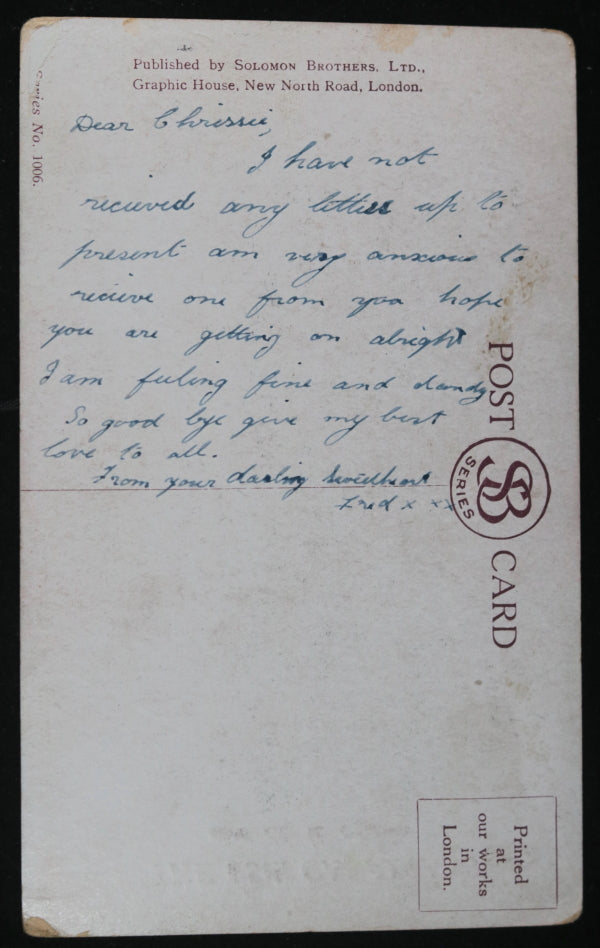 Published by SOLOMON BROTHERS, LTD.,
Graphic House, New North Road, London.
Series No. 1006.
Dear Chrissie,
I have not
recieved any letters up to
present am very anxious to
recieve one from you hope
you are getting on alright
I am feeling fine and dandy
So good bye give my best
love to all.
From your darling Sweetheart
Fred x xx
POST CARD
SB
SERIES
Printed
at
our works
in
London.